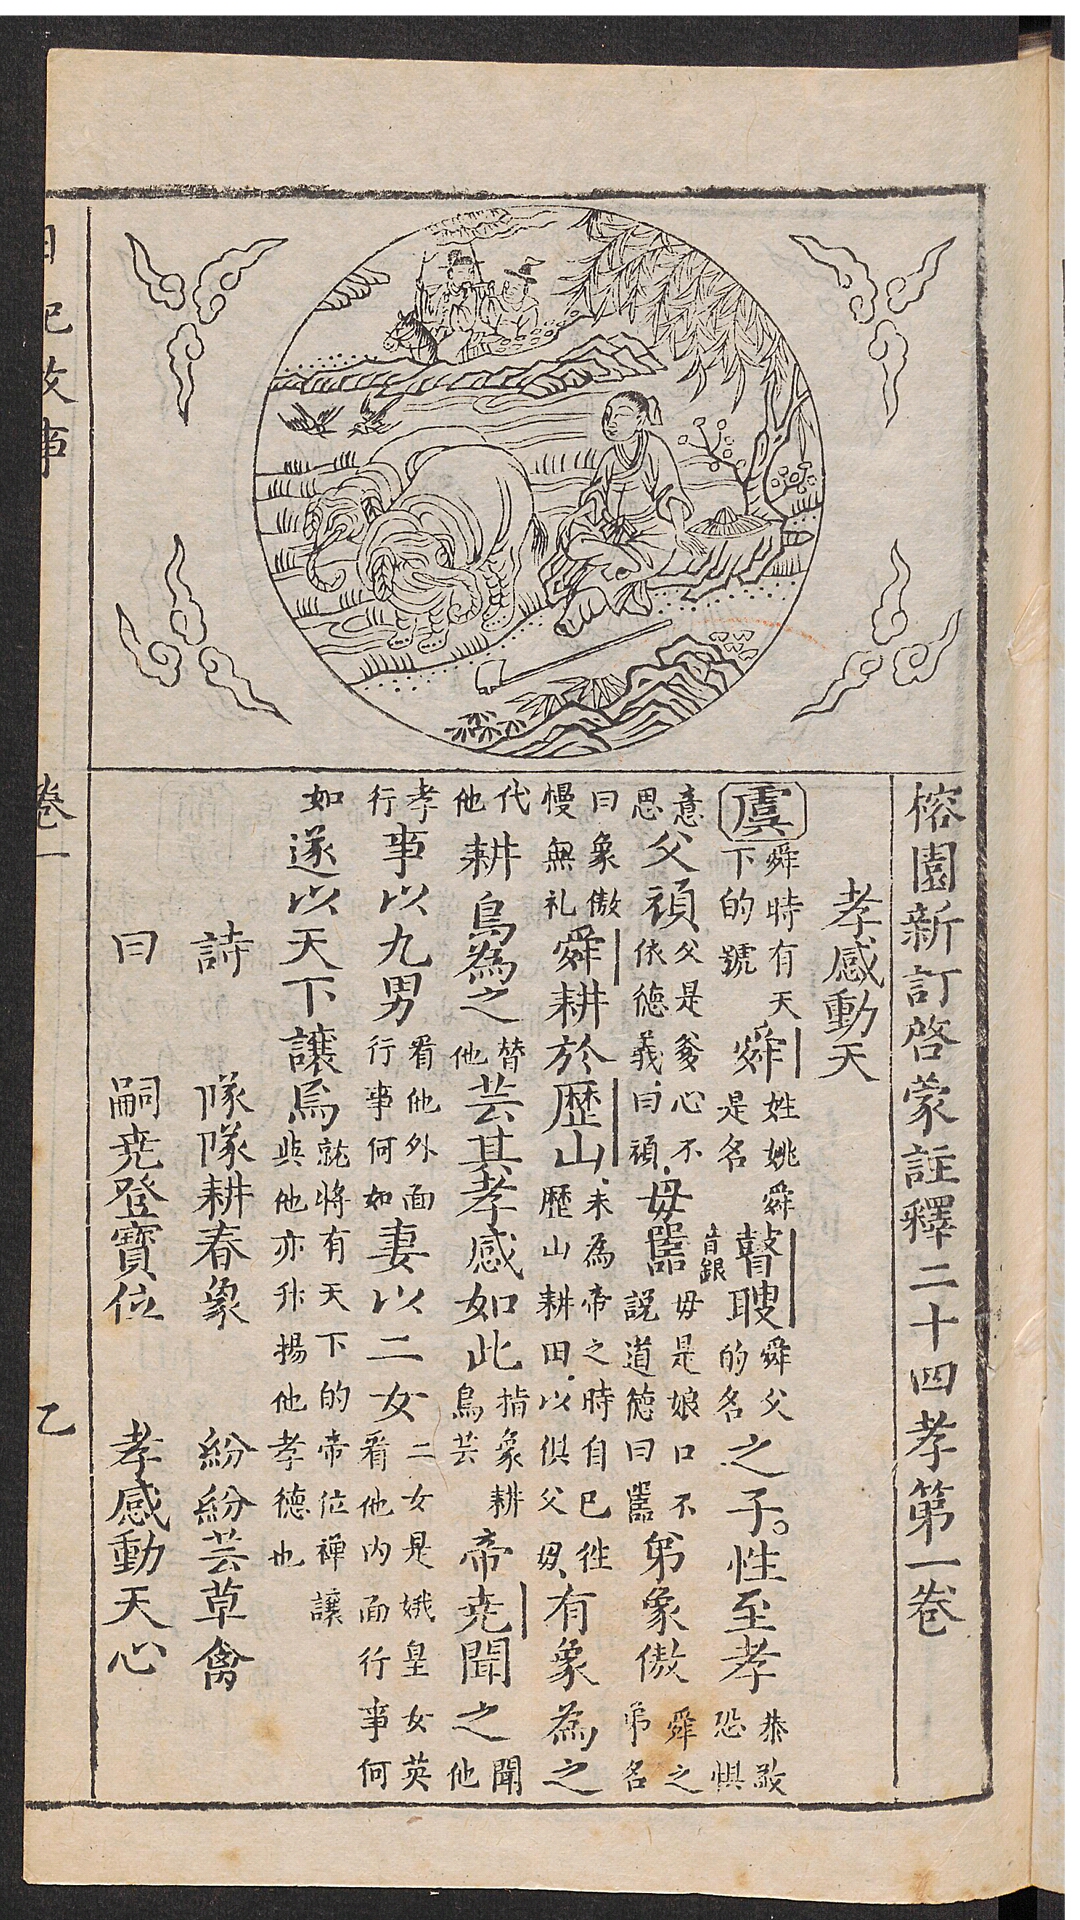 榕園新訂啓蒙註釋二十四孝第一卷
孝感動天
虞舜時有天下的號舜姓姚舜是名瞽瞍舜父的名之子。性至孝恭敬恐惧
意思父頑父是爹心不依德義曰頑毋嚚音銀毋是娘口不說道德曰嚚弟象傲舜之弟名
曰象傲慢無礼舜耕於歷山未為帝之時自己徃歷山耕田以俱父毋有象為之
代他耕鳥為之替他芸其孝感如此指象耕鳥芸帝尭聞之聞他
孝行事以九男看他外面行事何如妻以二女二女是娥皇女英看他內面行事何
如遂以天下讓焉就將有天下的帝位禅讓與他亦升揚他孝德也
詩 隊隊耕春象 紛紛芸草禽
曰 嗣尭登寶位 孝感動天心
日記故事 卷一 乙